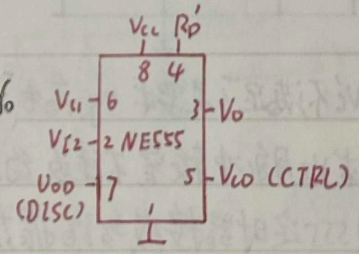 Vcc RD'
8 4
VI1 6 3 VO
VI2 2 NE555
VOD 7 5 VCO (CTRL)
(DISC)
1